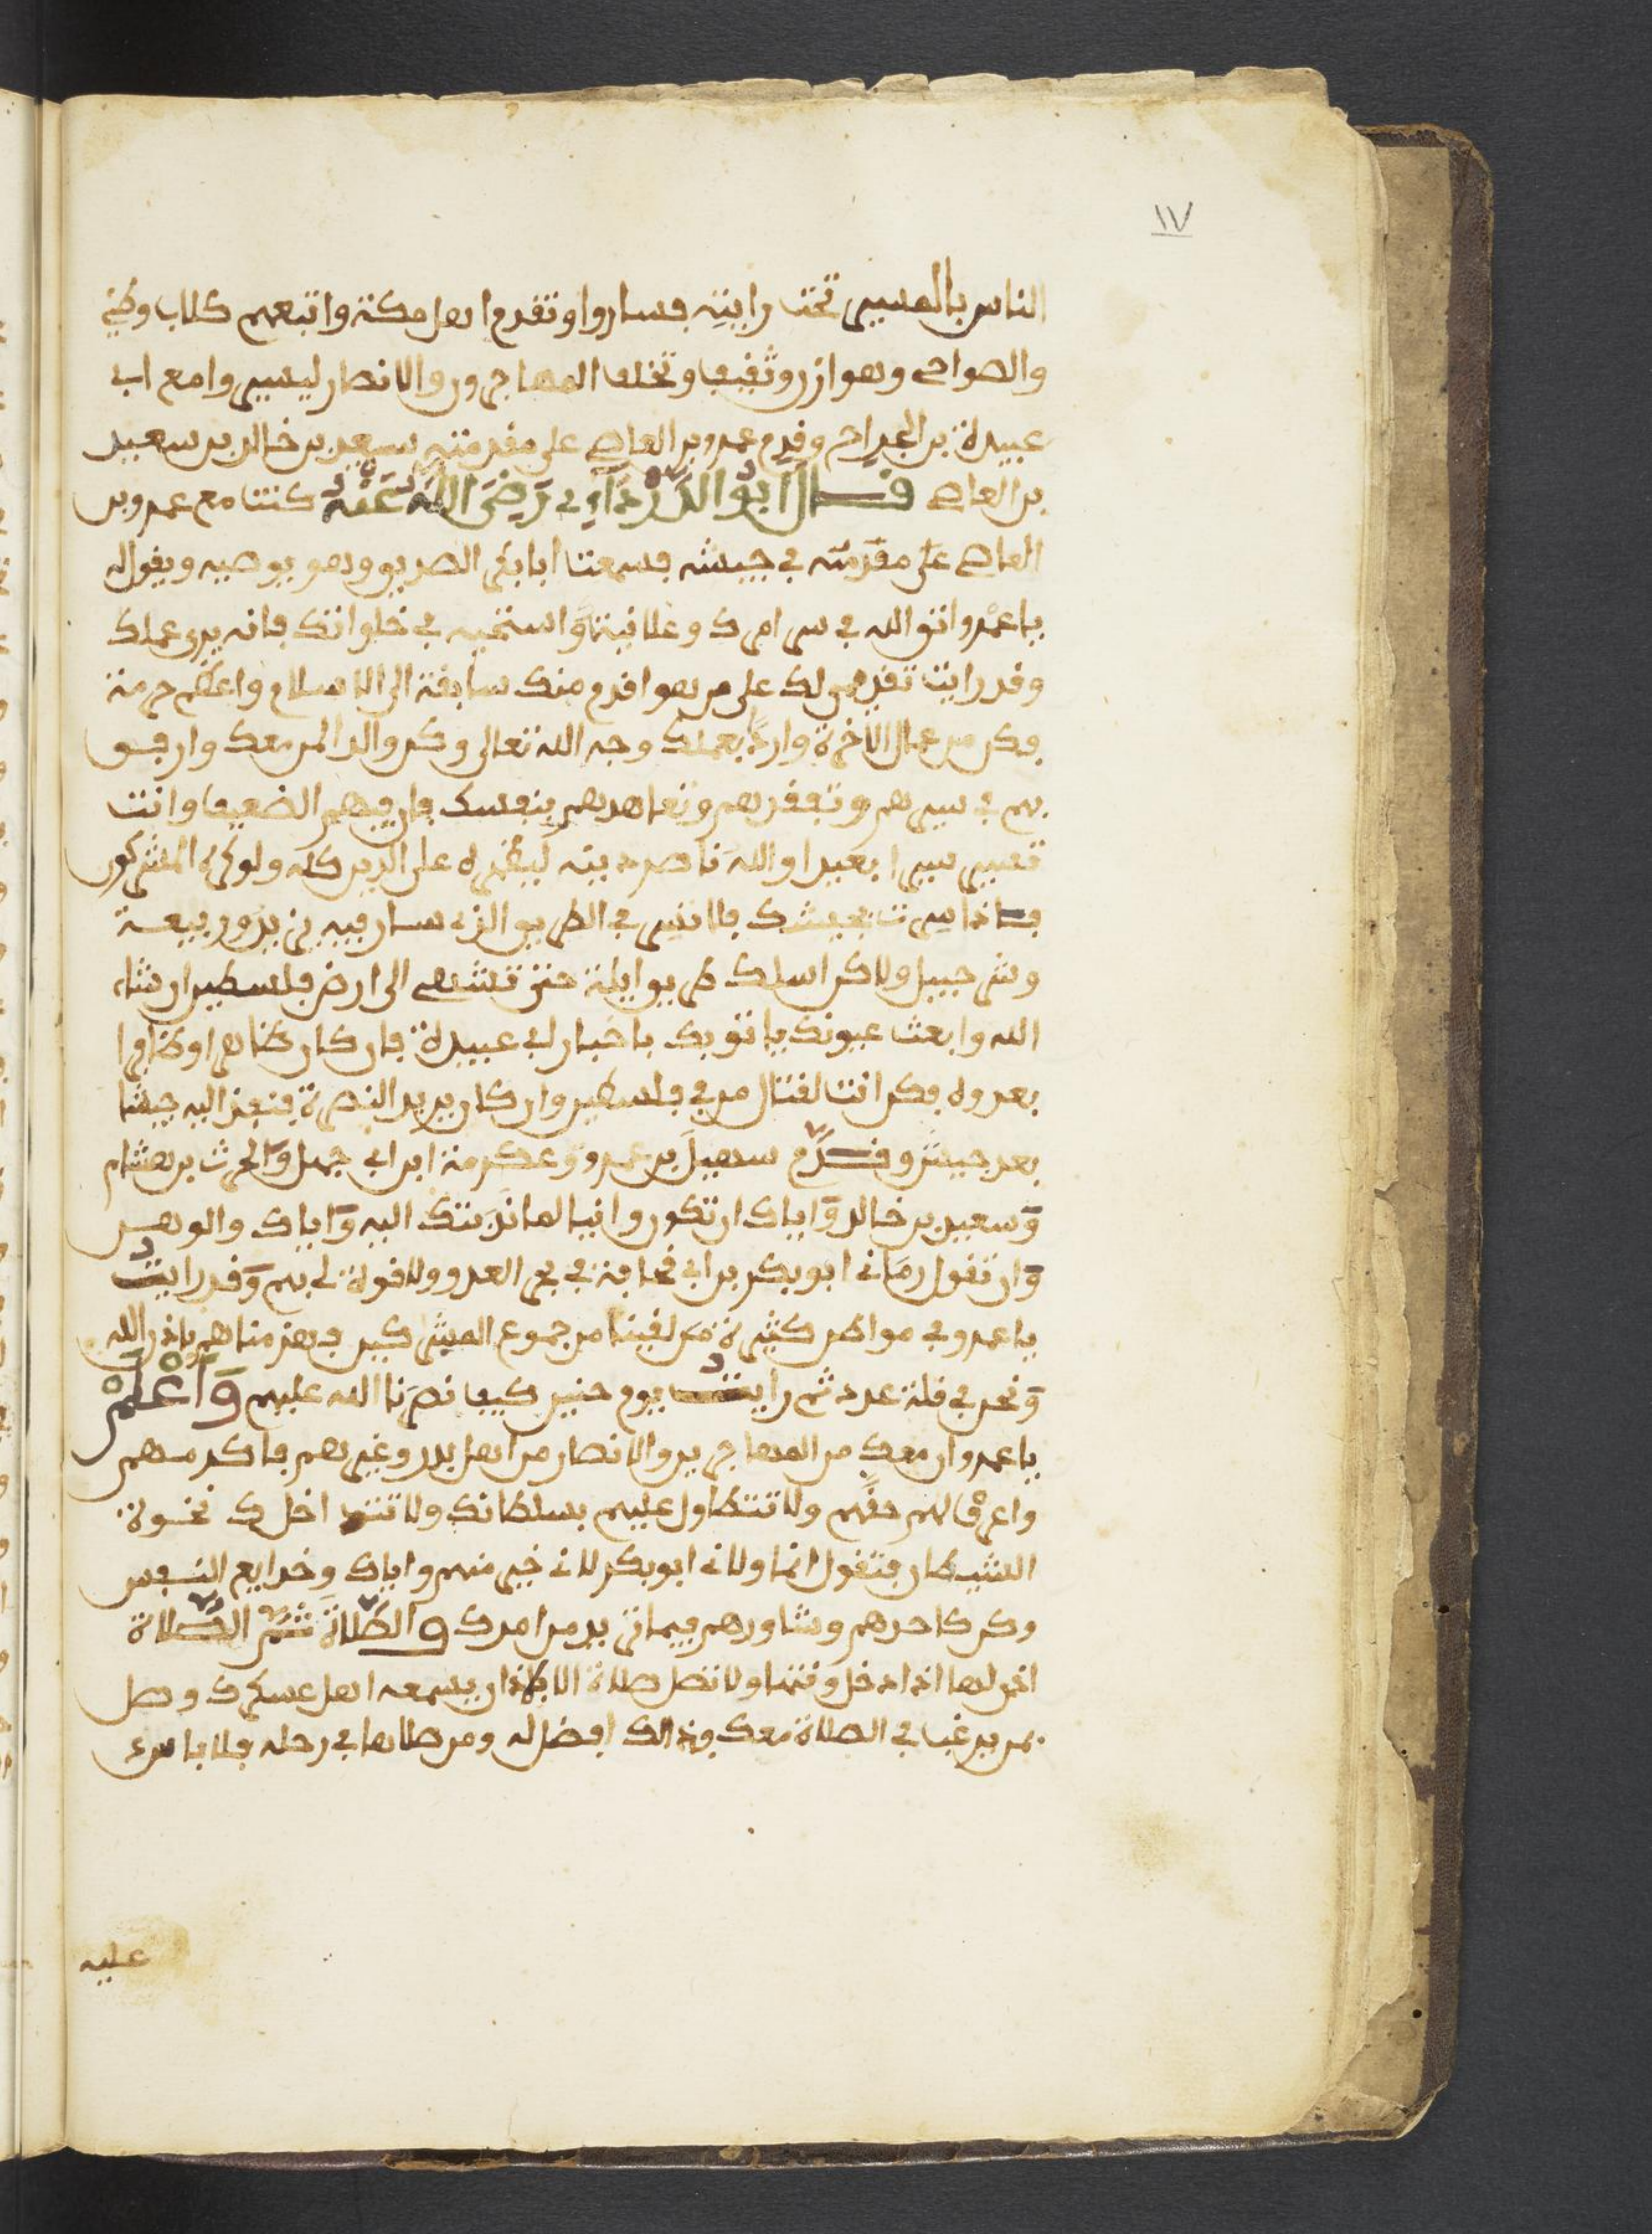 ١٧
الناس بالمسير تحت رايته فساروا وتقدم اهل مكة واتبعهم كلاب وطيئ
والصواحى وهوازن وثقيف وتخلف المهاجرون والانصار ليسيروا مع ابى
عبيدة بن الجراح وقدم عمرو بن العاصى على مقدمته سعيد بن خالد بن سعيد
بن العاصى قال ابو الدرداء رضي الله عنه كنت مع عمرو بن
العاصى على مقدمته في جيشه فسمعت ابا بكر الصديق وهو يوصيه ويقول له
يا عمرو اتق الله في سر امرك وعلانيته واستحيه في خلواتك فانه يرى عملك
وقد رايت تقديمى لك على من هو اقدم منك سابقة الى الاسلام واعظم حرمة
فكن من عمال الاخرة وارد بعملك وجه الله تعالى وكن والد المن معك وارفق
بهم في سيرهم وتفقدهم وتعاهدهم بنفسك فان فيهم الضعيف وانت
تسير سيرا بعيدا والله ناصر دينه ليظهره على الدين كله ولو كره المشركون
فاذا سرت بجيشك فلا تسر في الطريق الذى سار فيه يزيد وربيعة
وشرحبيل ولاكن اسلك طريق ايلة حتى تنتهى الى ارض فلسطين ان شاء
الله وابعث عيونك ياتوبك باخبار ابى عبيدة فان كان ظاهرا وظافرا
بعدوه فكن انت لقتال من في فلسطين وان كان يريد النصرة فنفذ اليه جيشا
بعد جيش وقدم سهيل بن عمرو وعكرمة ابن ابى جهل والحرث بن هشام
وسعيد بن خالد واياك ان تكون وانيا لما ندبتك اليه واياك والوهن
وان تقول رمانى ابو بكر بن ابى قحافة في نحر العدو ولا قوة لى بهم وقد رايت
يا عمرو في مواطن كثيرة من لقينا من جموع المشركين فهزمناهم باذن الله
ونحن في قلة عدد ثم رايت يوم حنين كيف نصرنا الله عليهم واعلم
يا عمرو ان معك من المهاجرين والانصار من اهل بدر وغيرهم فاكرمهم
واعرف لهم حقهم ولا تتطاول عليهم بسلطانك ولا تتداخلك نخوة
الشيطان فتقول انما ولانى ابو بكر لانى خير منهم واياك وخدايع النفس
وكن كاحدهم وشاورهم فيما تريد من امرك والصلاة ثم الصلاة
اذن لها اذا دخل وقتها ولا تصل صلاة الا باذان يسمعه اهل عسكرك وصل
بمن يرغب في الصلاة معك فذالك افضل له ومن صلاها في رحله فلا باس
عليه